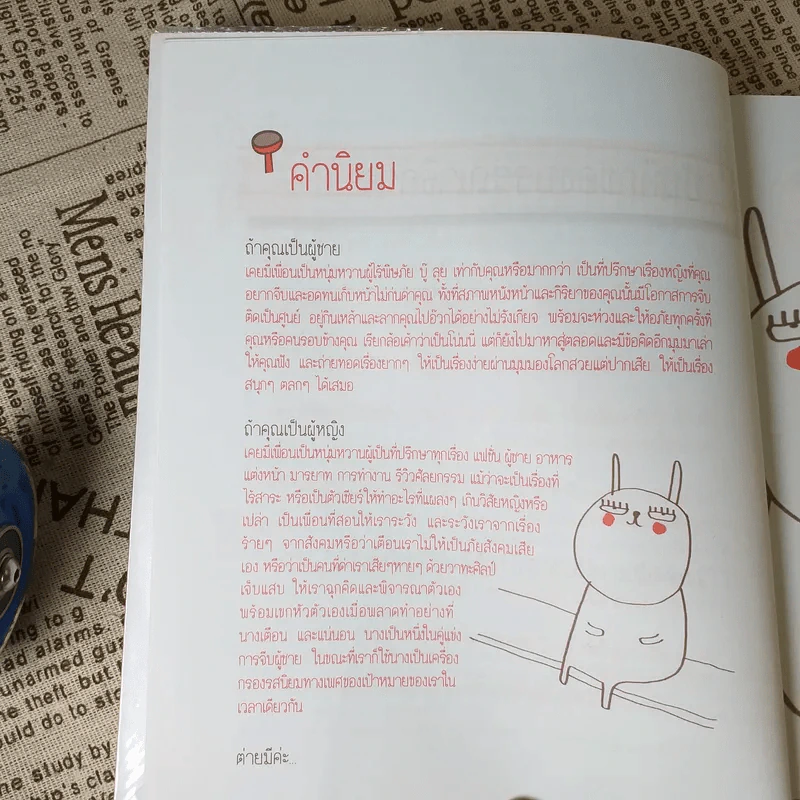 คำนิยม
ถ้าคุณเป็นผู้ชาย
เคยมีเพื่อนเป็นหนุ่มหวานผู้ไร้พิษภัย บู๊ ลุย เท่ากับคุณหรือมากกว่า เป็นที่ปรึกษาเรื่องหญิงที่คุณ
อยากจีบและอดทนเก็บหน้าไม่ก่นด่าคุณ ทั้งที่สภาพหนังหน้าและกิริยาของคุณนั้นมีโอกาสการจีบ
ติดเป็นศูนย์ อยู่กินเหล้าและลากคุณไปอ๊วกได้อย่างไม่รังเกียจ พร้อมจะห่วงและให้อภัยทุกครั้งที่
คุณหรือคนรอบข้างคุณ เรียกล้อเค้าว่าเป็นโน่นนี่ แต่ก็ยังไปมาหาสู่ตลอดและมีข้อคิดอีกมุมมาเล่า
ให้คุณฟัง และถ่ายทอดเรื่องยากๆ ให้เป็นเรื่องง่ายผ่านมุมมองโลกสวยแต่ปากเสีย ให้เป็นเรื่อง
สนุกๆ ตลกๆ ได้เสมอ
ถ้าคุณเป็นผู้หญิง
เคยมีเพื่อนเป็นหนุ่มหวานผู้เป็นที่ปรึกษาทุกเรื่อง แฟชั่น ผู้ชาย อาหาร
แต่งหน้า มารยาท การทำงาน รีวิวศัลยกรรม แม้ว่าจะเป็นเรื่องที่
ไร้สาระ หรือเป็นตัวเชียร์ให้ทำอะไรที่แผลงๆ เกินวิสัยหญิงหรือ
เปล่า เป็นเพื่อนที่สอนให้เราระวัง และระวังเราจากเรื่อง
ร้ายๆ จากสังคมหรือว่าเตือนเราไม่ให้เป็นภัยสังคมเสีย
เอง หรือว่าเป็นคนที่ด่าเราเสียๆหายๆ ด้วยวาทะศิลป์
เจ็บแสบ ให้เราฉุกคิดและพิจารณาตัวเอง
พร้อมเขกหัวตัวเองเมื่อพลาดทำอย่างที่
นางเตือน และแน่นอน นางเป็นหนึ่งในคู่แข่ง
การจีบผู้ชาย ในขณะที่เราก็ใช้นางเป็นเครื่อง
กรองรสนิยมทางเพศของเป้าหมายของเราใน
เวลาเดียวกัน
ต่ายมีค่ะ...
Men's Health